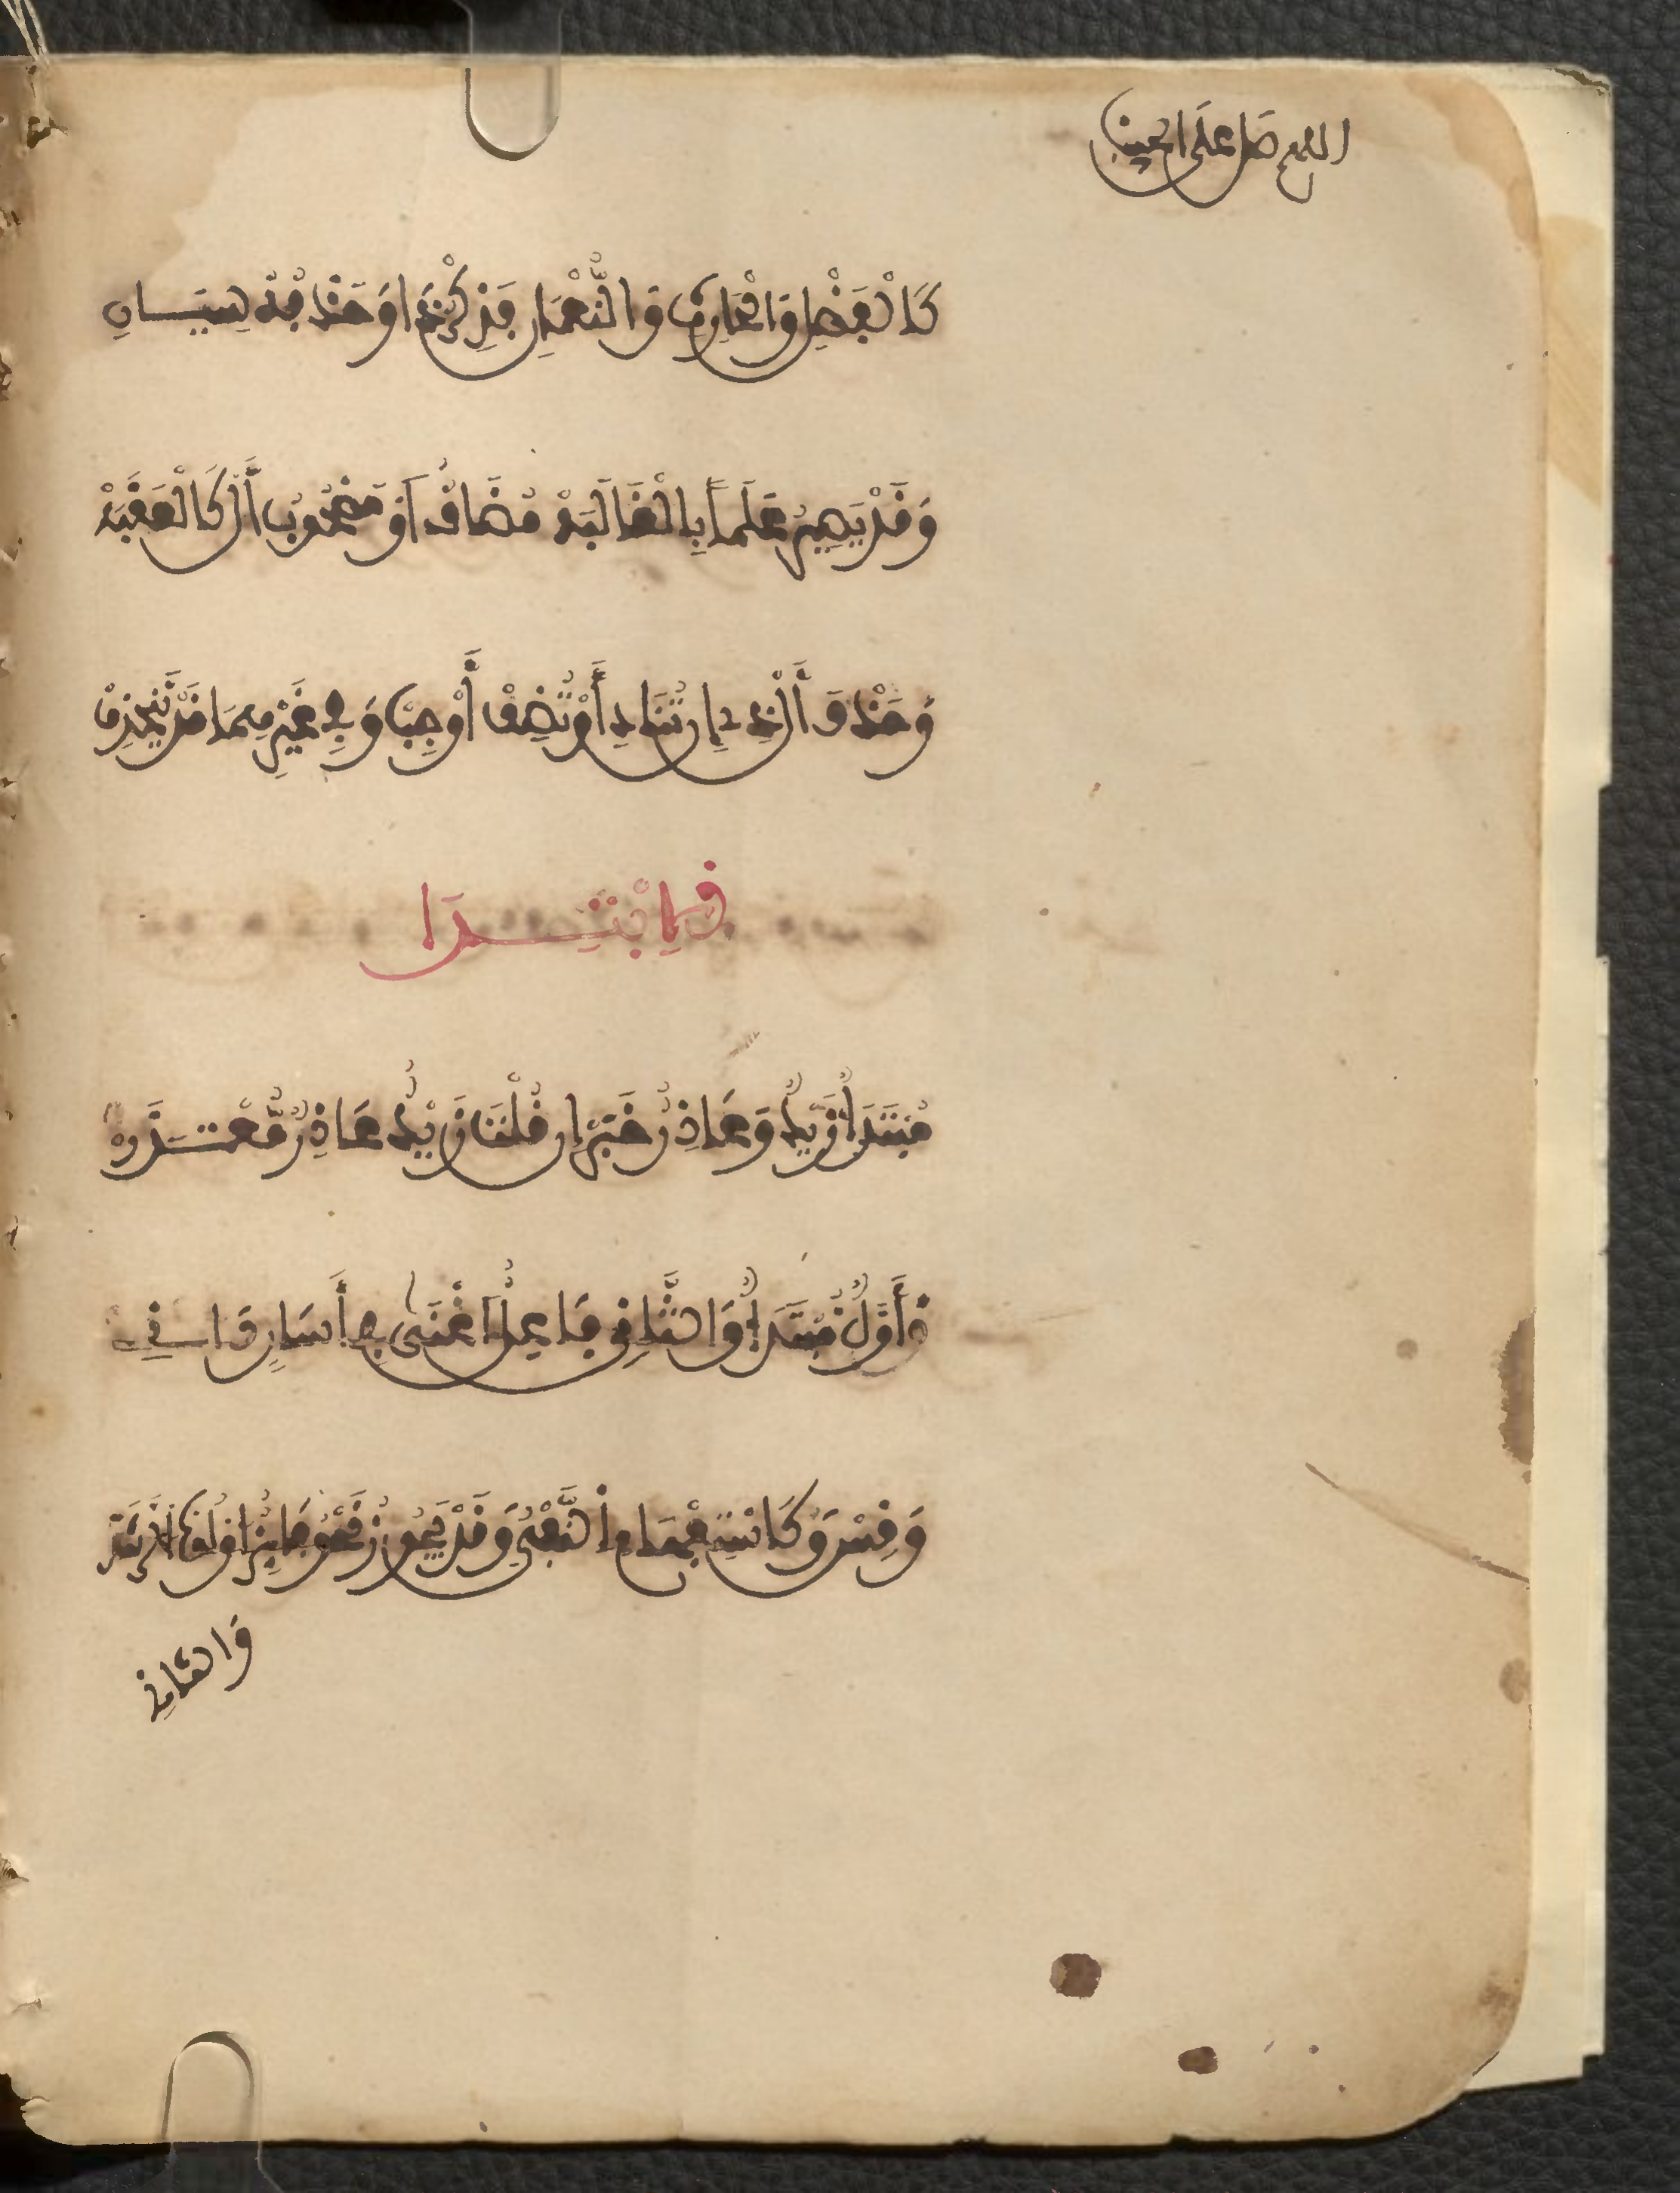 اللهم صل على الحبيب
كَالْفَضْلِ وَالْحَارِثِ وَالنُّعْمَانِ فَذِكْرُ ذَا وَحَذْفُهُ سِيَّـــانِ
وَقَدْ يَصِيرُ عَلَماً بِالْغَالَبَهْ مُضَافٌ اَوْ مَصْحُوبُ أَلْ كَالْعَقَبَهْ
وَحَذْفَ أَلْ ذِي إِن تُنَادِ أَوْ تُضِفْ أَوْجِبْ وَفِي غَيْرِهِمَا قَدْ تَنْحَذِفْ
فِلِابْتِـــدَا
مُبْتَدَأٌ زَيْدٌ وَعَاذِرٌ خَبَرْ إِن قُلْتَ زَيْدٌ عَاذِرٌ مَّن اعْتَـــذَرَ
وَأَوَّلٌ مُبْتَدَأٌ وَالثَّانِي فَاعِلٌ اَغْنَى فِي أَسَارٍ ذَانِ
وَقِسْ وَكَاسْتِفْهَامٍ اِلنَّفْيُ وَقَدْ يَجُوزُ نَحْوُ فَائِزٌ اوْلُوا الرَّشَدْ
وَالثَّانِي